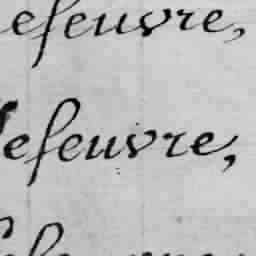 efeuvre,
Lefeuvre,